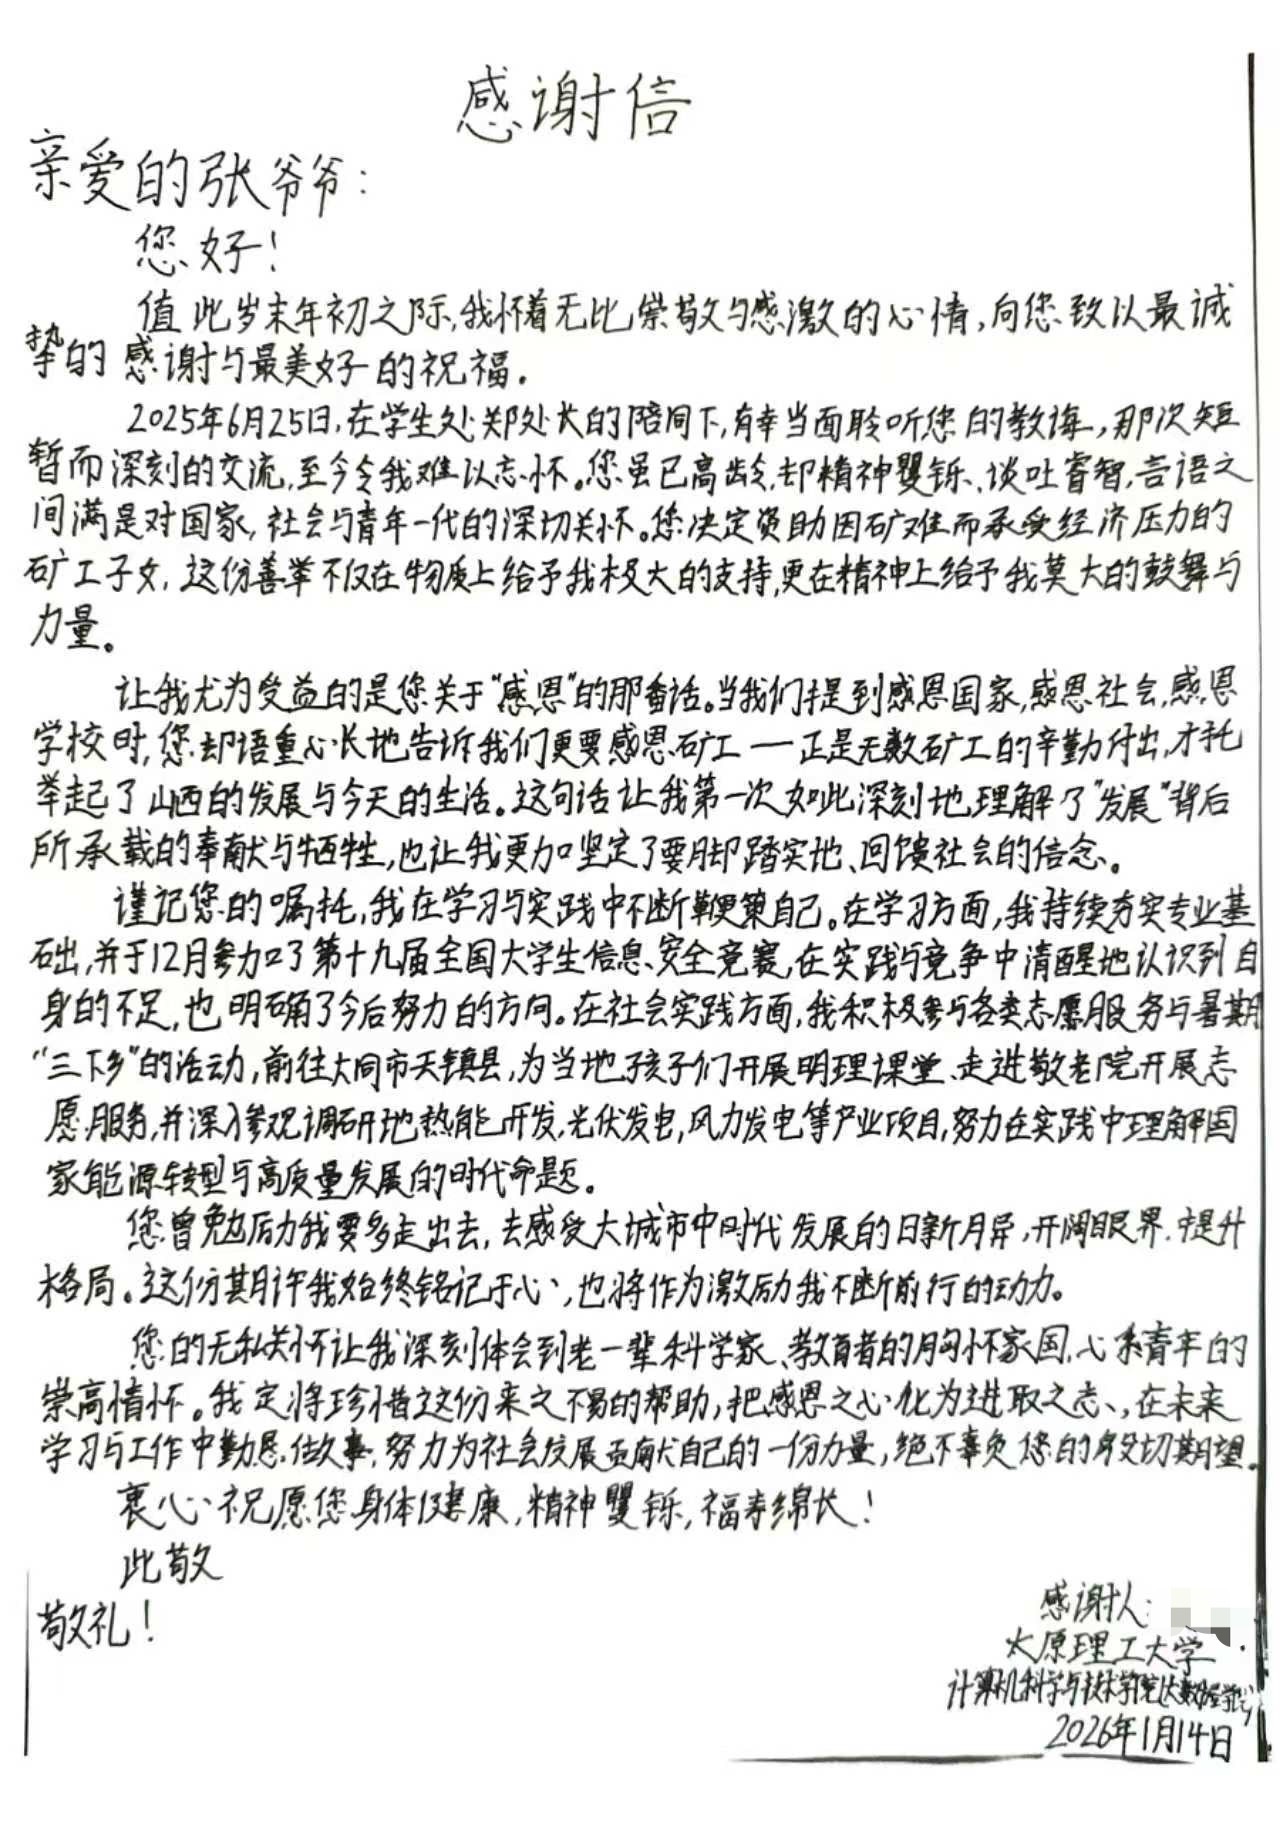 感谢信
亲爱的张爷爷：
您好！
值此岁末年初之际，我怀着无比崇敬与感激的心情，向您致以最诚
挚的感谢与最美好的祝福。
2025年6月25日，在学生处郑处长的陪同下，有幸当面聆听您的教诲，那次短
暂而深刻的交流，至今令我难以忘怀。您虽已高龄，却精神矍铄、谈吐睿智，言语之
间满是对国家，社会与青年一代的深切关怀。您决定资助因矿难而承受经济压力的
矿工子女，这份善举不仅在物质上给予我极大的支持，更在精神上给予我莫大的鼓舞与
力量。
让我尤为受益的是您关于“感恩”的那番话。当我们提到感恩国家，感恩社会，感恩
学校时，您却语重心长地告诉我们更要感恩矿工——正是无数矿工的辛勤付出，才托
举起了山西的发展与今天的生活。这句话让我第一次如此深刻地理解了“发展”背后
所承载的奉献与牺牲，也让我更加坚定了要脚踏实地、回馈社会的信念。
谨记您的嘱托，我在学习与实践中不断鞭策自己。在学习方面，我持续夯实专业基
础，并于12月参加了第十九届全国大学生信息安全竞赛，在实践与竞争中清醒地认识到自
身的不足，也明确了今后努力的方向。在社会实践方面，我积极参与各类志愿服务与暑期
“三下乡”的活动，前往大同市天镇县，为当地孩子们开展明理课堂、走进敬老院开展志
愿服务，并深入参观调研地热能开发，光伏发电，风力发电等产业项目，努力在实践中理解国
家能源转型与高质量发展的时代命题。
您曾勉励我要多走出去，去感受大城市中时代发展的日新月异，开阔眼界，提升
格局。这份期许我始终铭记于心，也将作为激励我不断前行的动力。
您的无私关怀让我深刻体会到老一辈科学家、教育者的胸怀家国，心系青年的
崇高情怀。我定将珍惜这份来之不易的帮助，把感恩之心化为进取之志，在未来
学习与工作中勤恳做事，努力为社会发展贡献自己的一份力量，绝不辜负您的殷切期望。
衷心祝愿您身体健康，精神矍铄，福寿绵长！
此敬
敬礼！
感谢人：
太原理工大学
计算机科学与技术学院（大数据学院）
2026年1月14日